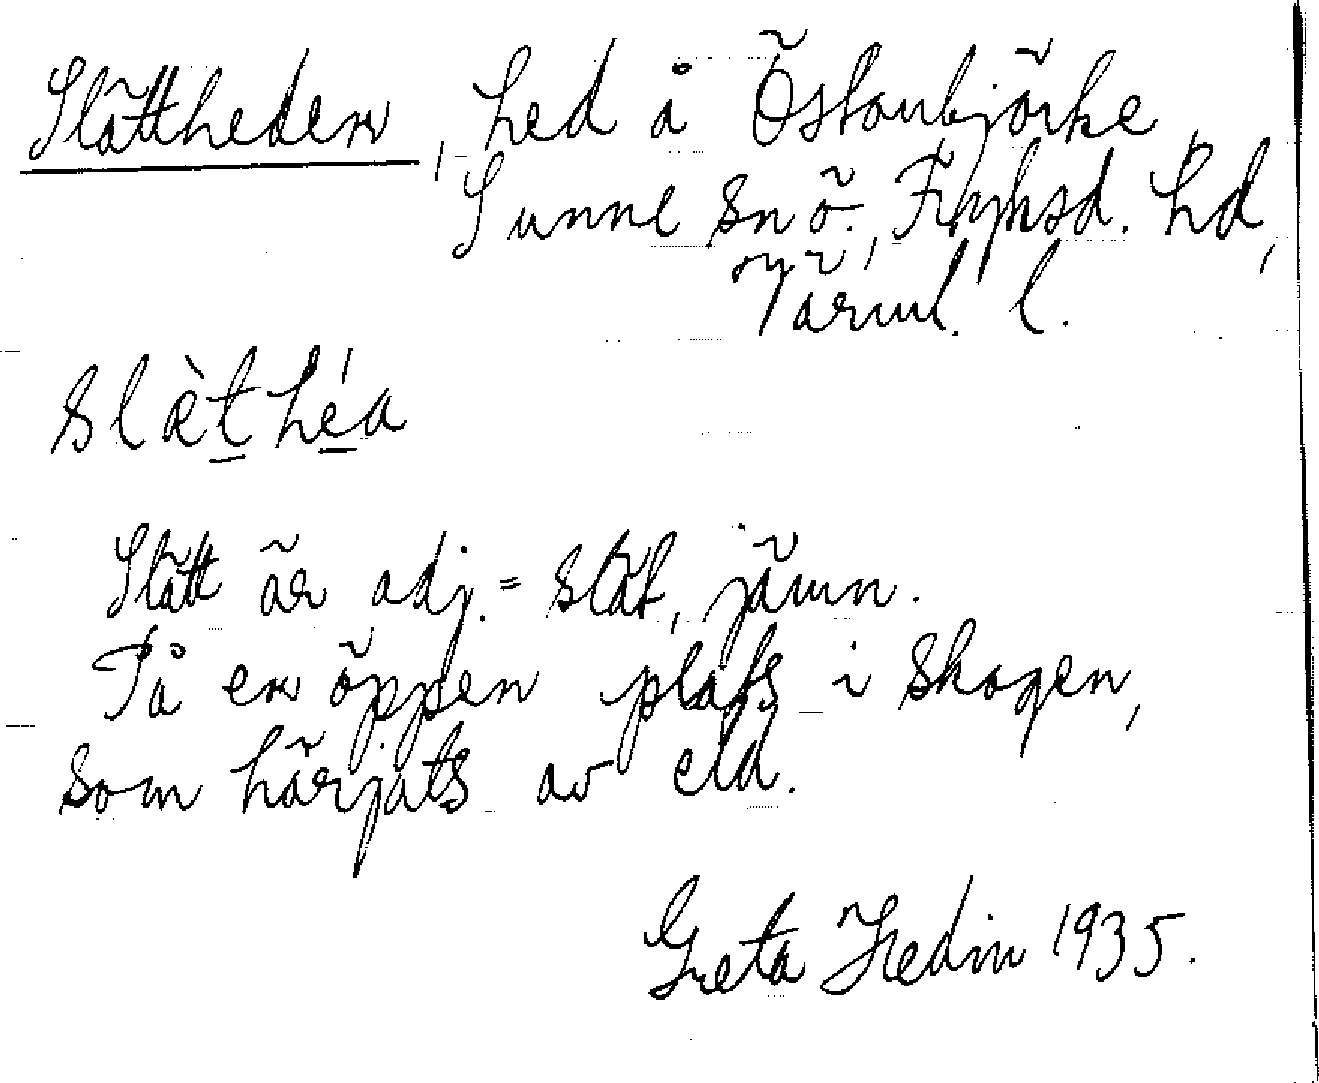 Slättheden, hed å Östanbjörke,
Sunne sn ö., Fryksd. hd,
Värml. l.
slæ̀t héa
Slätt är adj. = slät, jämn.
På en öppen plats i skogen,
som härjats av eld.
Greta Hedin 1935.